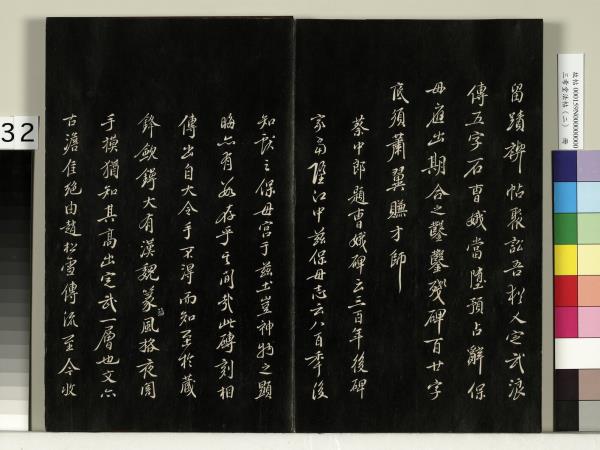 留蹟禊帖聚訟吾猶人定武浪
傳五字石曹娥當墮預占辭保
母遊出期合之鑿鑿殘碑百廿字
底須蕭翼賺才師
蔡中郎題曹娥碑云三百年後碑
家當墮江中茲保母志云八百年後
知獻之保母宮于茲土豈神物之顯
晦亦有數存乎其間哉此磚刻相
傳出自大令手不得而知至於
鋒鍔大有漢魏篆風格夜闌
手摸猶知其高出定武一層也文亦
古澹佳絕由趙松雪傳流至今收
32
故帖 000159N000000000
三希堂法帖(二) 冊